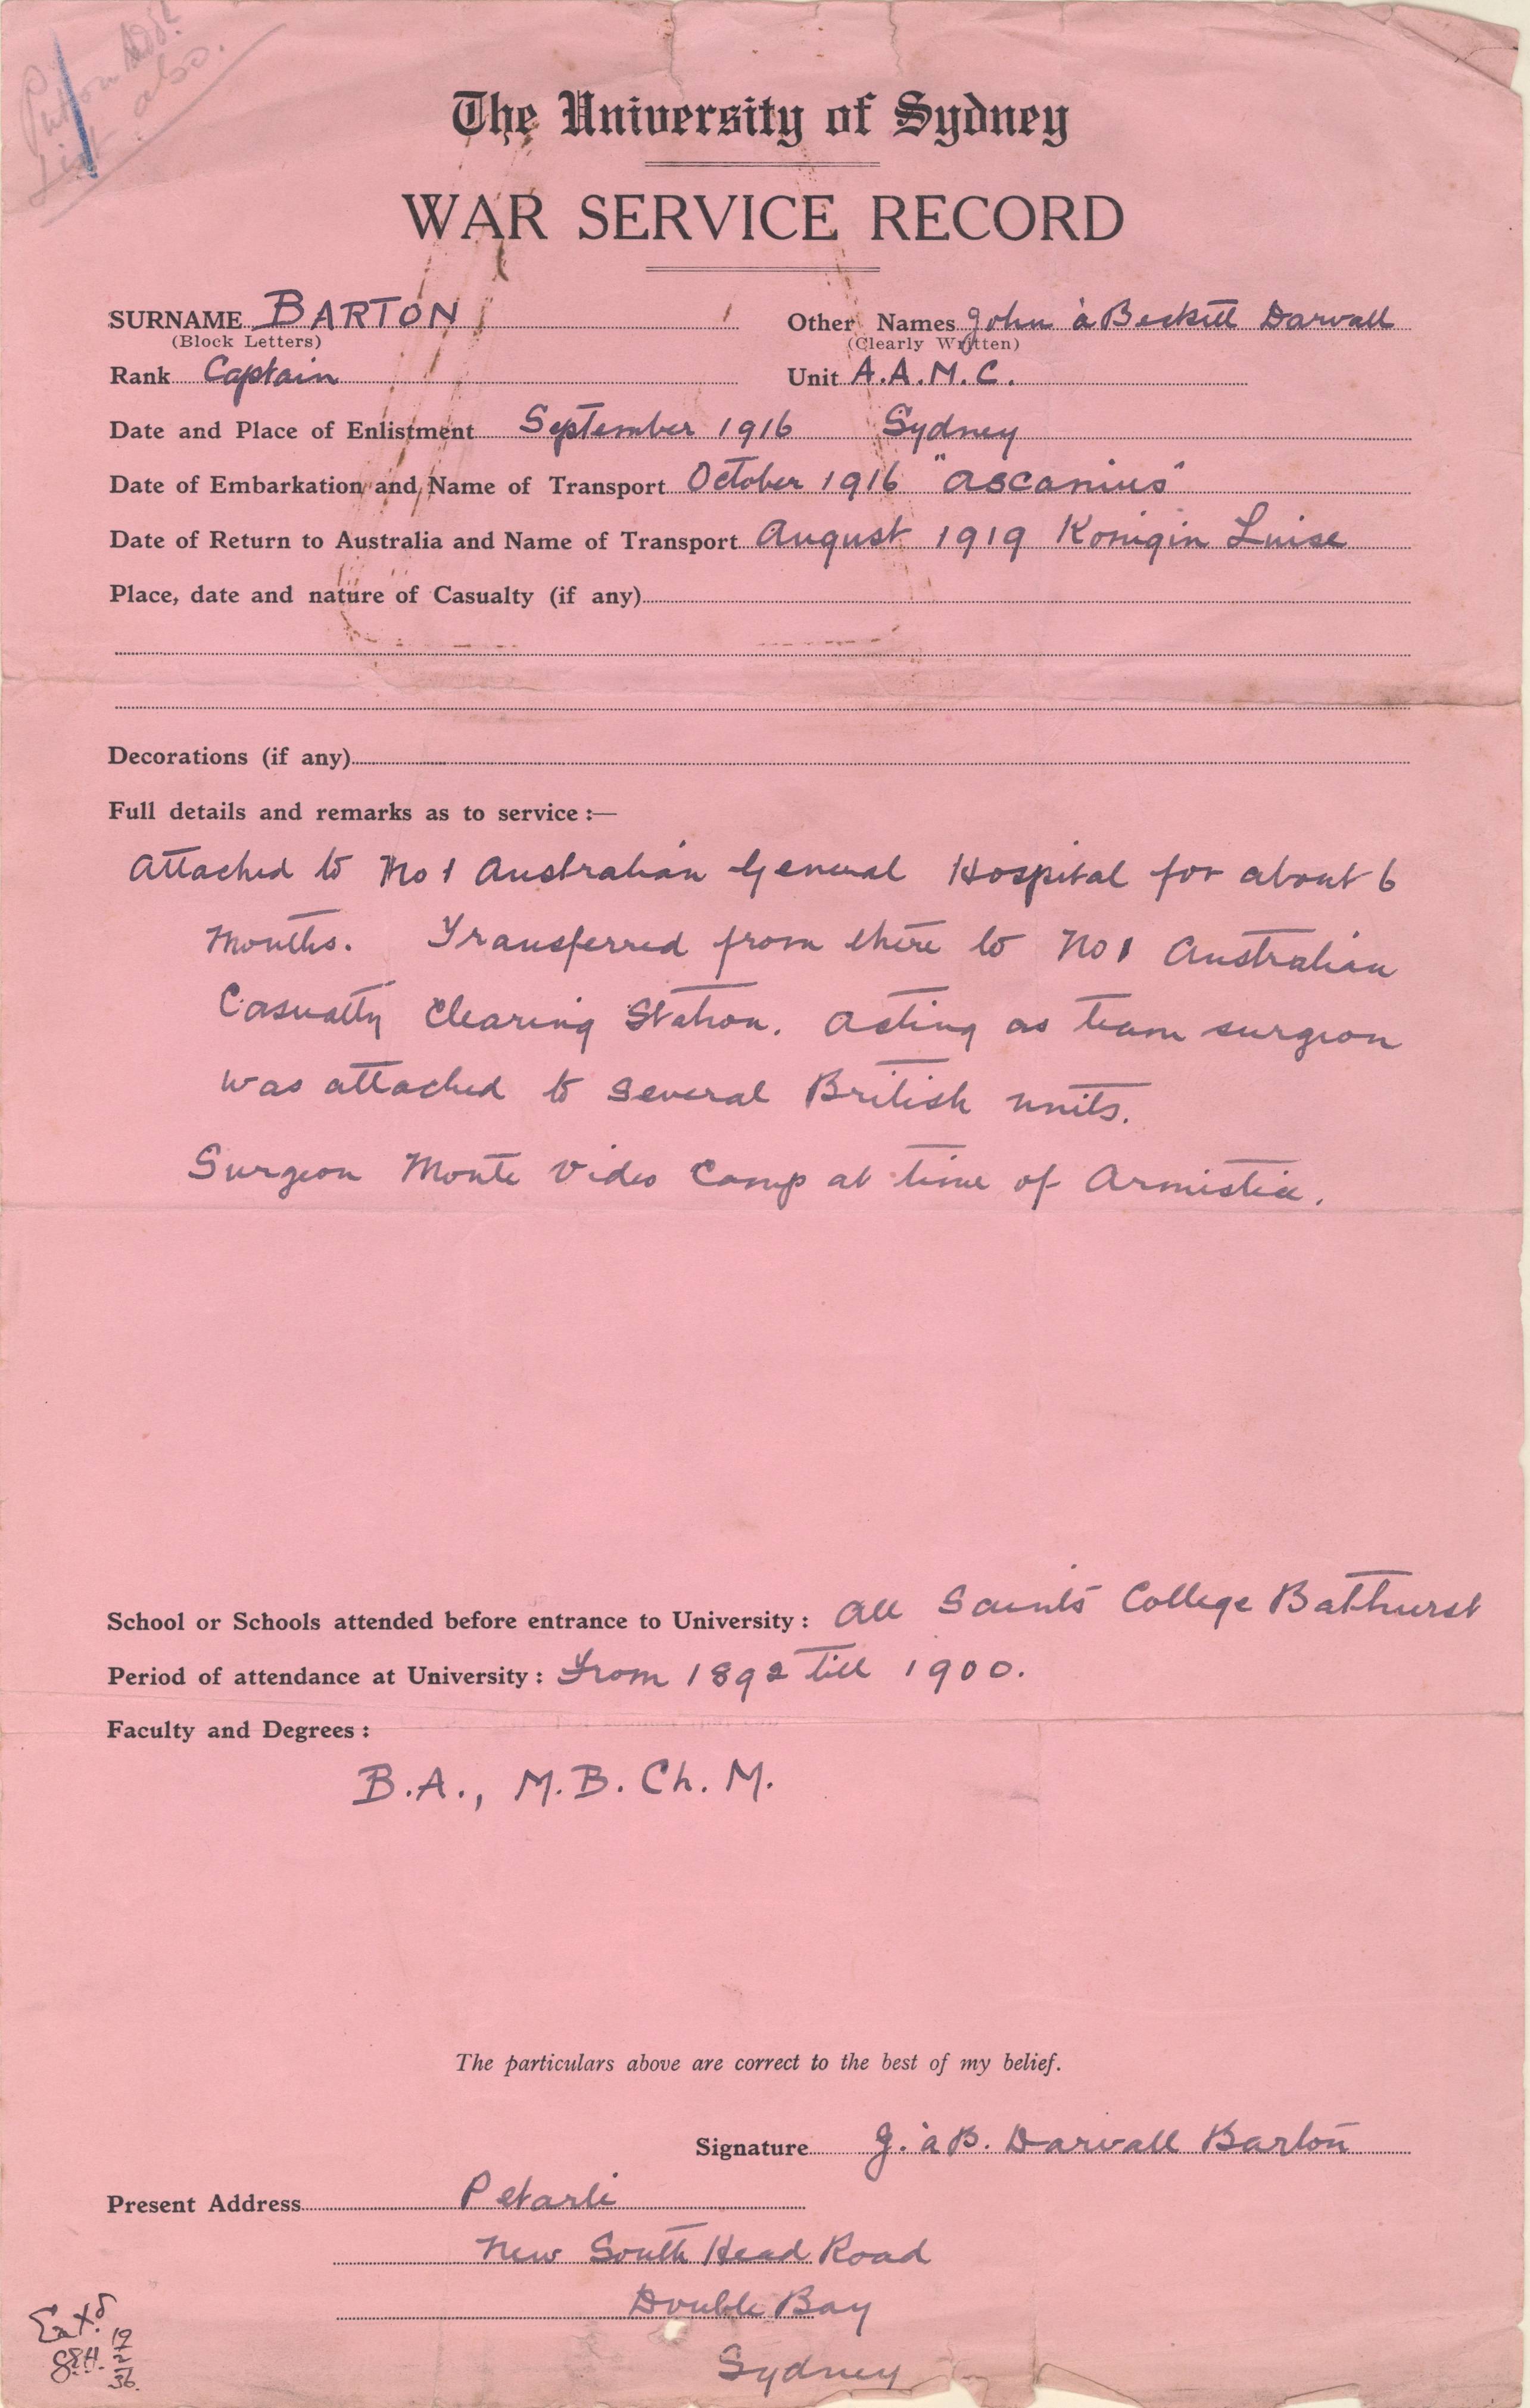 Put on Add.
List also.
The University of Sydney
WAR SERVICE RECORD
SURNAME BARTON Other Names John à Beckett Darvall
(Block Letters) (Clearly Written)
Rank Captain Unit A.A.M.C.
Date and Place of Enlistment September 1916 Sydney
Date of Embarkation and Name of Transport October 1916 "Ascanius"
Date of Return to Australia and Name of Transport August 1919 Konigin Luise
Place, date and nature of Casualty (if any)
Decorations (if any)
Full details and remarks as to service :—
Attached to No 1 Australian General Hospital for about 6
months. Transferred from there to No 1 Australian
Casualty Clearing Station. Acting as team surgeon
was attached to several British units.
Surgeon Monte Video Camp at time of Armistice.
School or Schools attended before entrance to University : All Saints College Bathurst
Period of attendance at University : From 1892 till 1900.
Faculty and Degrees :
B.A., M.B. Ch. M.
The particulars above are correct to the best of my belief.
Signature J. à B. Darvall Barton
Present Address Petarli
New South Head Road
Double Bay
Sydney
Extd
19
2
36.